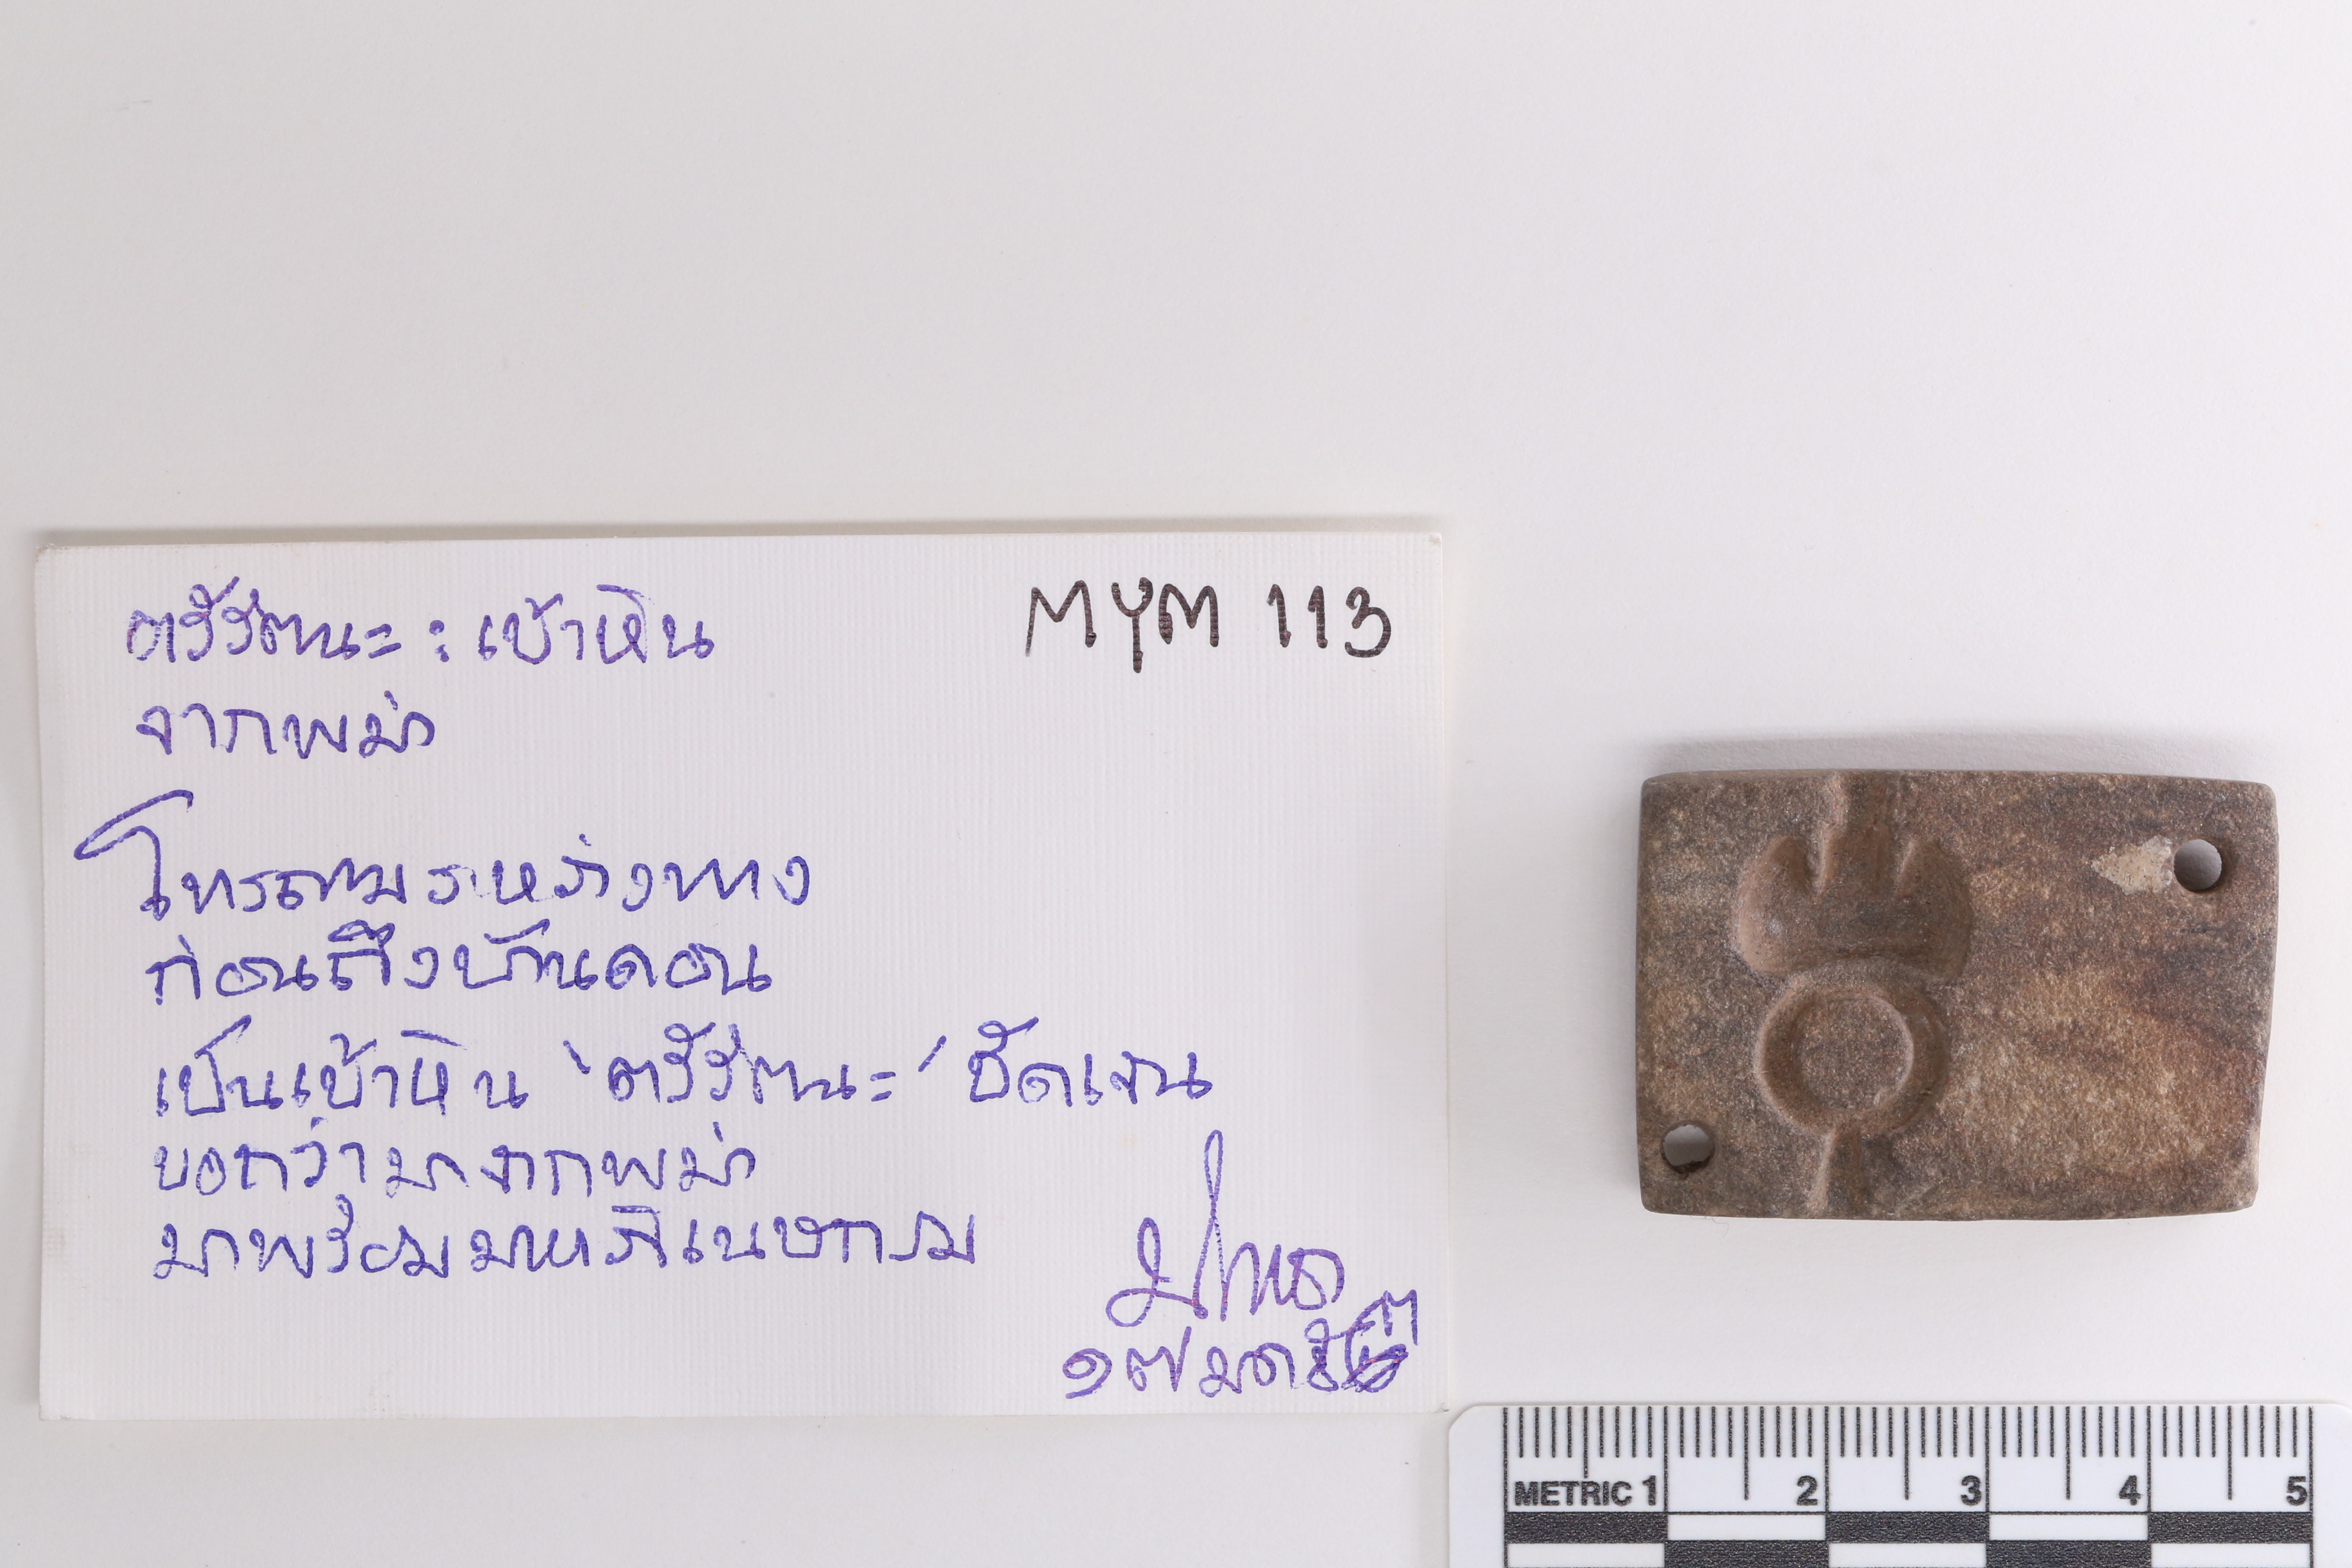 ตรีรัตนะ : เบ้าหิน
MYM 113
จากพม่า
โทรถามระหว่างทาง
ก่อนถึงบ้านดอน
เป็นเบ้าหิน 'ตรีรัตนะ' ชัดเจน
บอกว่ามาจากพม่า
มาพร้อมมหาภิเนษกรม
๑๗ มค
METRIC 1 2 3 4 5